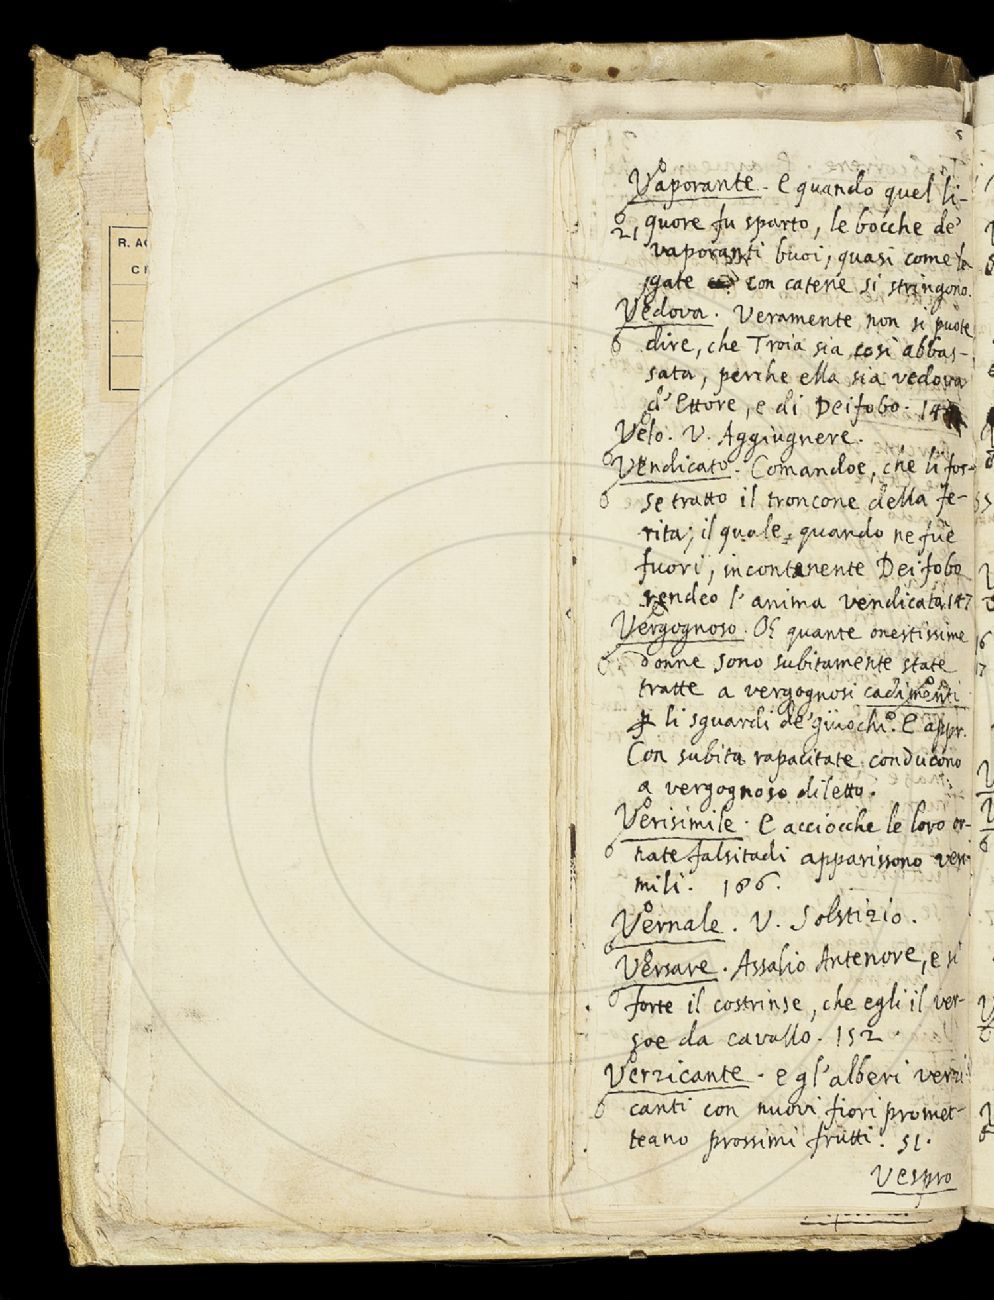 R. AC
C
Vaporante. E quando quel li-
quore fu sparto, le bocche de'
21 vaporanti buoi, quasi come le
gate con catene si stringono.
Vedova. Veramente non si puote
6 dire, che Troia sia così abbas-
sata, perche ella sia vedova
d'Ettore, e di Deifobo. 14
Velo. V. Aggiugnere.
Vendicato. Comandoe, che li fos-
6 se tratto il troncone della fe-
rita; il quale, quando ne fue
fuori, incontanente Deifobo
rendeo l'anima vendicata. 147
Vergognoso. O quante onestissime
6 donne sono subitamente state
tratte a vergognosi cadimenti
p li sguardi de' giuochi. E appr.
Con subita rapacitate conducono
a vergognoso diletto.
Verisimile. E acciocche le loro or-
6 nate falsitadi apparissono veri
mili. 186.
Vernale. V. Solstizio.
Versare. Assalio Antenore, e sì
6 forte il costrinse, che egli il ver-
soe da cavallo. 152.
Verzicante. e gl'alberi verzi
6 canti con nuovi fiori promet-
teano prossimi frutti. 51.
Vespro